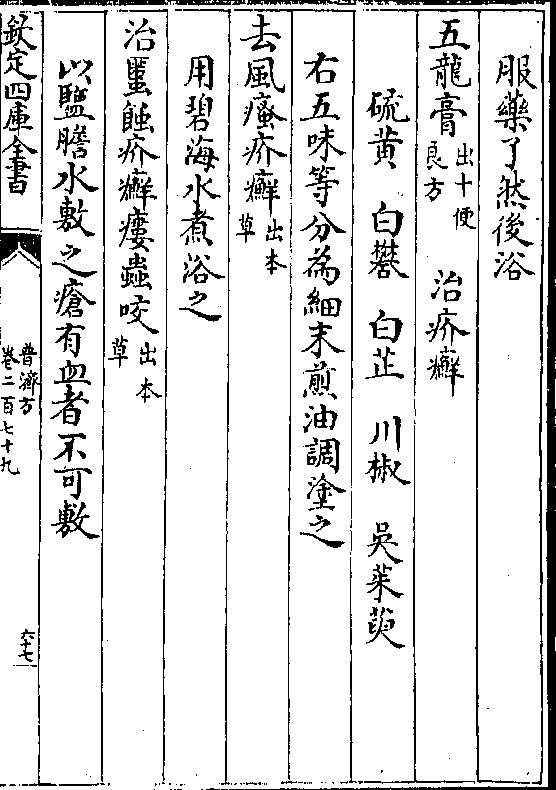 服藥了然後浴
五龍膏出十便良方　治疥癬
硫黄　白礬　白芷　川椒　吳茱萸
右五味等分為細末煎油調塗之
去風瘙疥癬出本草
用碧海水煮浴之
治䘌蝕疥癬瘻蟲咬出本草
以鹽膽水敷之瘡有血者不可敷
欽定四庫全書
普濟方
卷二百七十九
六十七